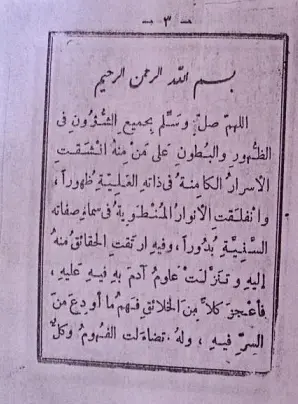 — ٣ —
بسم الله الرحمن الرحيم
اللهم صل وسلم بجميع الشؤون فى
الظهور والبطون على من منه انشقت
الأسرار الكامنة فى ذاته العلية ظهوراً،
وانفلقت الأنوار المنطوية فى سماء صفاته
السنية بدوراً، وفيه ارتقت الحقائق منه
إليه وتنزلت علوم آدم به فيه عليه،
فأعجز كلاً من الخلائق فهم ما أودع من
السر فيه، وله تضاءلت الفهوم وكل